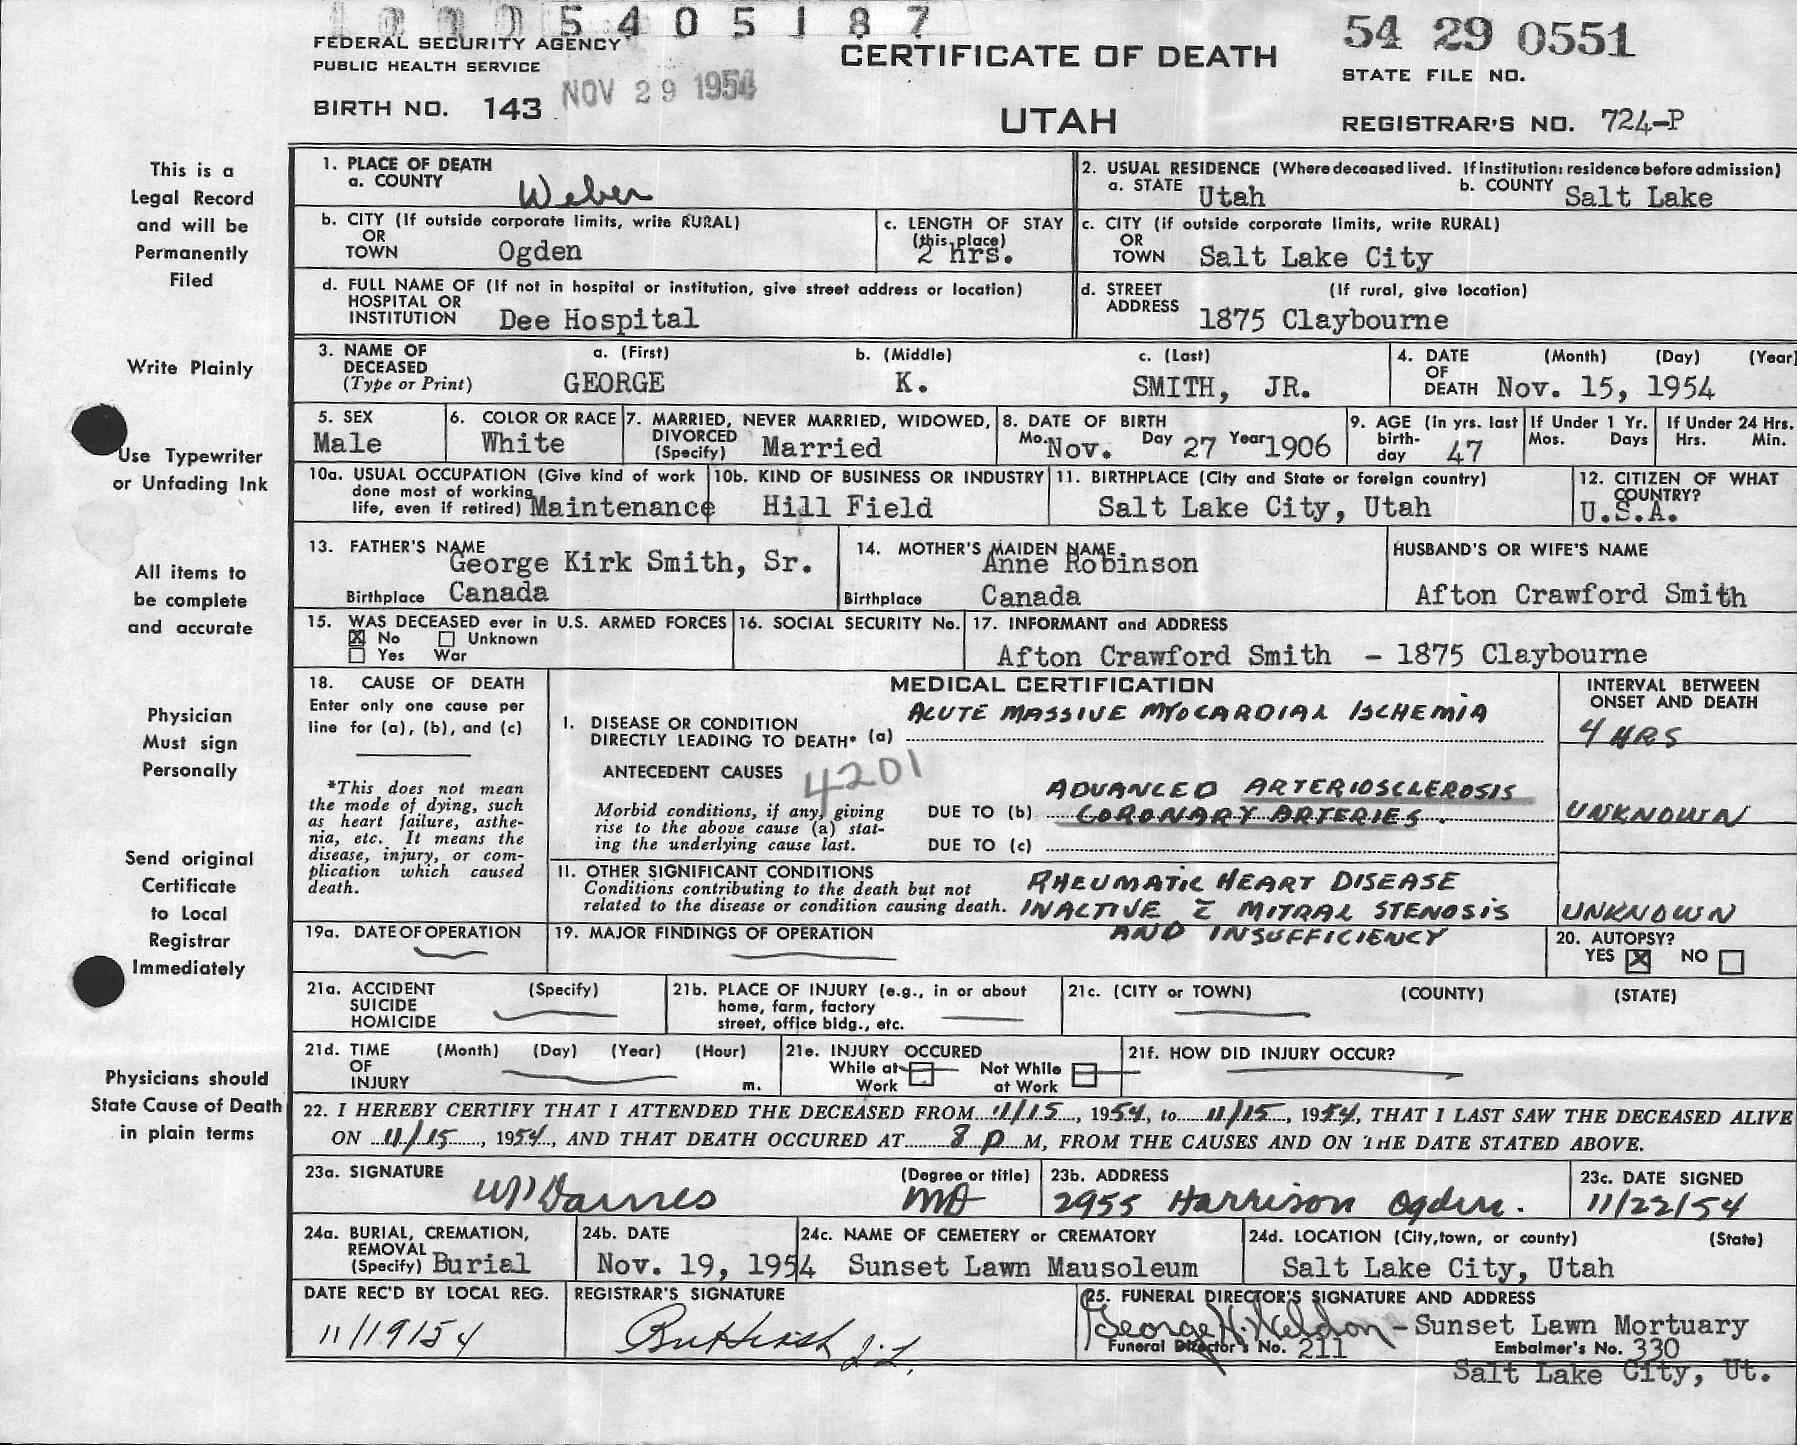 1000 5405187
FEDERAL SECURITY AGENCY
PUBLIC HEALTH SERVICE
NOV 29 1954
BIRTH NO. 143
CERTIFICATE OF DEATH
UTAH
54 29 0551
STATE FILE NO.
REGISTRAR'S NO. 724-P
This is a
Legal Record
and will be
Permanently
Filed
Write Plainly
Use Typewriter
or Unfading Ink
All items to
be complete
and accurate
Physician
Must sign
Personally
Send original
Certificate
to Local
Registrar
Immediately
Physicians should
State Cause of Death
in plain terms
1. PLACE OF DEATH
a. COUNTY Weber
2. USUAL RESIDENCE (Where deceased lived. If institution: residence before admission)
a. STATE Utah b. COUNTY Salt Lake
b. CITY (If outside corporate limits, write RURAL)
OR
TOWN Ogden
c. LENGTH OF STAY
(this place)
2 hrs.
c. CITY (if outside corporate limits, write RURAL)
OR
TOWN Salt Lake City
d. FULL NAME OF (If not in hospital or institution, give street address or location)
HOSPITAL OR
INSTITUTION Dee Hospital
d. STREET (If rural, give location)
ADDRESS 1875 Claybourne
3. NAME OF a. (First) b. (Middle) c. (Last)
DECEASED
(Type or Print) GEORGE K. SMITH, JR.
4. DATE (Month) (Day) (Year)
OF
DEATH Nov. 15, 1954
5. SEX
Male
6. COLOR OR RACE
White
7. MARRIED, NEVER MARRIED, WIDOWED,
DIVORCED
(Specify) Married
8. DATE OF BIRTH
Mo. Nov. Day 27 Year 1906
9. AGE (In yrs. last
birth-
day 47
If Under 1 Yr.
Mos. Days
If Under 24 Hrs.
Hrs. Min.
10a. USUAL OCCUPATION (Give kind of work
done most of working
life, even if retired) Maintenance
10b. KIND OF BUSINESS OR INDUSTRY
Hill Field
11. BIRTHPLACE (City and State or foreign country)
Salt Lake City, Utah
12. CITIZEN OF WHAT
COUNTRY?
U.S.A.
13. FATHER'S NAME
George Kirk Smith, Sr.
Birthplace Canada
14. MOTHER'S MAIDEN NAME
Anne Robinson
Birthplace Canada
HUSBAND'S OR WIFE'S NAME
Afton Crawford Smith
15. WAS DECEASED ever in U.S. ARMED FORCES
X No Unknown
Yes War
16. SOCIAL SECURITY No.
17. INFORMANT and ADDRESS
Afton Crawford Smith - 1875 Claybourne
18. CAUSE OF DEATH
Enter only one cause per
line for (a), (b), and (c)
*This does not mean
the mode of dying, such
as heart failure, asthe-
nia, etc. It means the
disease, injury, or com-
plication which caused
death.
MEDICAL CERTIFICATION
INTERVAL BETWEEN
ONSET AND DEATH
ACUTE MASSIVE MYOCARDIAL ISCHEMIA
I. DISEASE OR CONDITION
DIRECTLY LEADING TO DEATH* (a)
4 HRS
ANTECEDENT CAUSES 4201
Morbid conditions, if any, giving
rise to the above cause (a) stat-
ing the underlying cause last.
ADVANCED ARTERIOSCLEROSIS
DUE TO (b) CORONARY ARTERIES.
UNKNOWN
DUE TO (c)
II. OTHER SIGNIFICANT CONDITIONS
Conditions contributing to the death but not
related to the disease or condition causing death.
RHEUMATIC HEART DISEASE
INACTIVE c̄ MITRAL STENOSIS
AND INSUFFICIENCY
UNKNOWN
19a. DATE OF OPERATION
19. MAJOR FINDINGS OF OPERATION
20. AUTOPSY?
YES X NO
21a. ACCIDENT (Specify)
SUICIDE
HOMICIDE
21b. PLACE OF INJURY (e.g., in or about
home, farm, factory
street, office bldg., etc.
21c. (CITY or TOWN) (COUNTY) (STATE)
21d. TIME (Month) (Day) (Year) (Hour)
OF
INJURY m.
21e. INJURY OCCURED
While at Not While
Work at Work
21f. HOW DID INJURY OCCUR?
22. I HEREBY CERTIFY THAT I ATTENDED THE DECEASED FROM 11/15, 1954, to 11/15, 1954, THAT I LAST SAW THE DECEASED ALIVE
ON 11/15, 1954, AND THAT DEATH OCCURED AT 8 P M, FROM THE CAUSES AND ON THE DATE STATED ABOVE.
23a. SIGNATURE (Degree or title)
MD
23b. ADDRESS
2955 Harrison Ogden.
23c. DATE SIGNED
11/22/54
24a. BURIAL, CREMATION,
REMOVAL
(Specify) Burial
24b. DATE
Nov. 19, 1954
24c. NAME OF CEMETERY or CREMATORY
Sunset Lawn Mausoleum
24d. LOCATION (City, town, or county) (State)
Salt Lake City, Utah
DATE REC'D BY LOCAL REG.
11/19/54
REGISTRAR'S SIGNATURE
25. FUNERAL DIRECTOR'S SIGNATURE AND ADDRESS
George H. Weldon - Sunset Lawn Mortuary
Funeral Director's No. 211 Embalmer's No. 330
Salt Lake City, Ut.